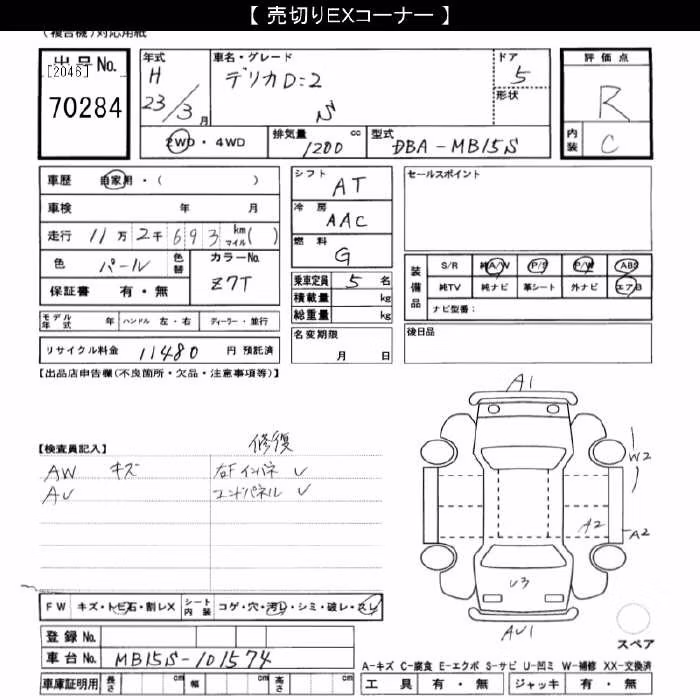 【 売切りEXコーナー 】
(複合機)対応用紙
出品No.
[2046]
70284
年式
H
23/3月
車名・グレード
デリカD:2
S
ドア
5
形状
評価点
R
内装
C
2WD・4WD
排気量 1200 cc
型式 DBA-MB15S
車歴 自家用・( )
車検 年 月
走行 11万2千693 km マイル( )
色 パール 色替
カラーNo. Z7T
保証書 有・無
モデル年式 年 ハンドル 左・右 ディーラー・並行
リサイクル料金 11480 円 預託済
シフト AT
冷房 AAC
燃料 G
乗車定員 5 名
積載量 kg
総重量 kg
名変期限
月 日
セールスポイント
装備品
S/R 純A/W P/S P/W ABS
純TV 純ナビ 革シート 外ナビ エアB
ナビ型番:
後日品
【出品店申告欄(不良箇所・欠品・注意事項等)】
【検査員記入】
修復
AW キズ
右Fインパネ レ
AU
エンドパネル レ
A1
W2
A2
A2
U3
AU1
スペア
FW キズ・トビ石・割レX シート内装 コゲ・穴・汚レ・シミ・破レ・スレ
登録No.
車台No. MB15S-101574
車庫証明用 長さ cm 幅 cm 高さ cm
A-キズ C-腐食 E-エクボ S-サビ U-凹ミ W-補修 XX-交換済
工具 有・無 ジャッキ 有・無